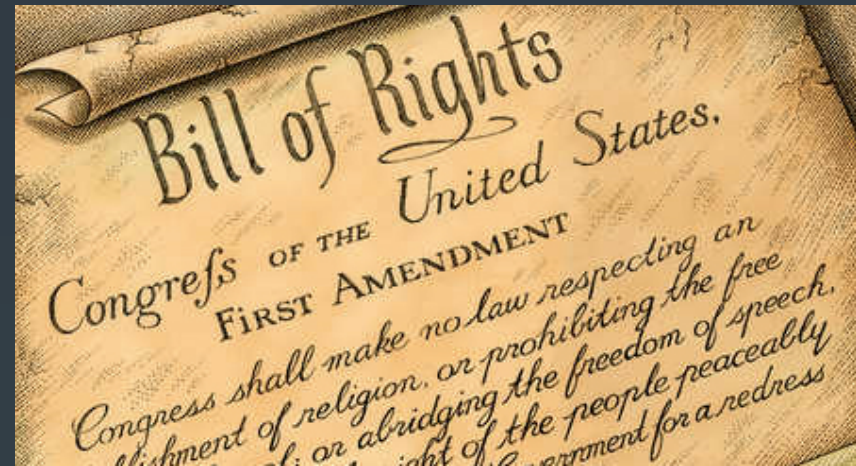 Bill of Rights
Congreſs OF THE United States.
FIRST AMENDMENT
Congress shall make no law respecting an
lishment of religion, or prohibiting the free
or abridging the freedom of speech,
of the people peaceably
for a redress